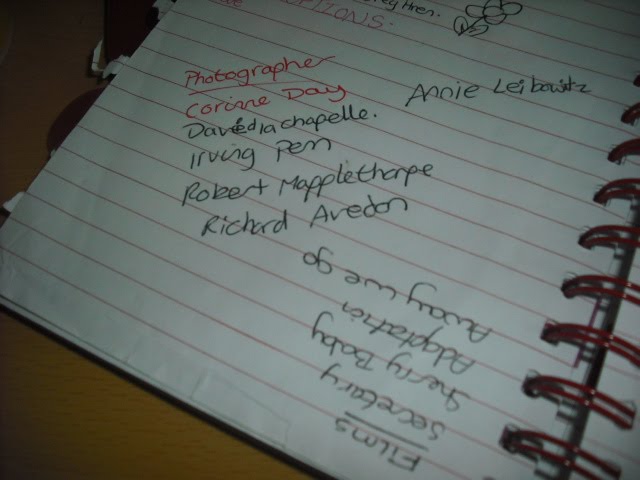 OPTIONS.
Photographer
Corinne Day
Annie Leibowitz
Davedlachapelle.
Irving Penn
Robert Mapplethorpe
Richard Avedon
Films
Secretary
Sherry Baby
Adaptation
Away we go